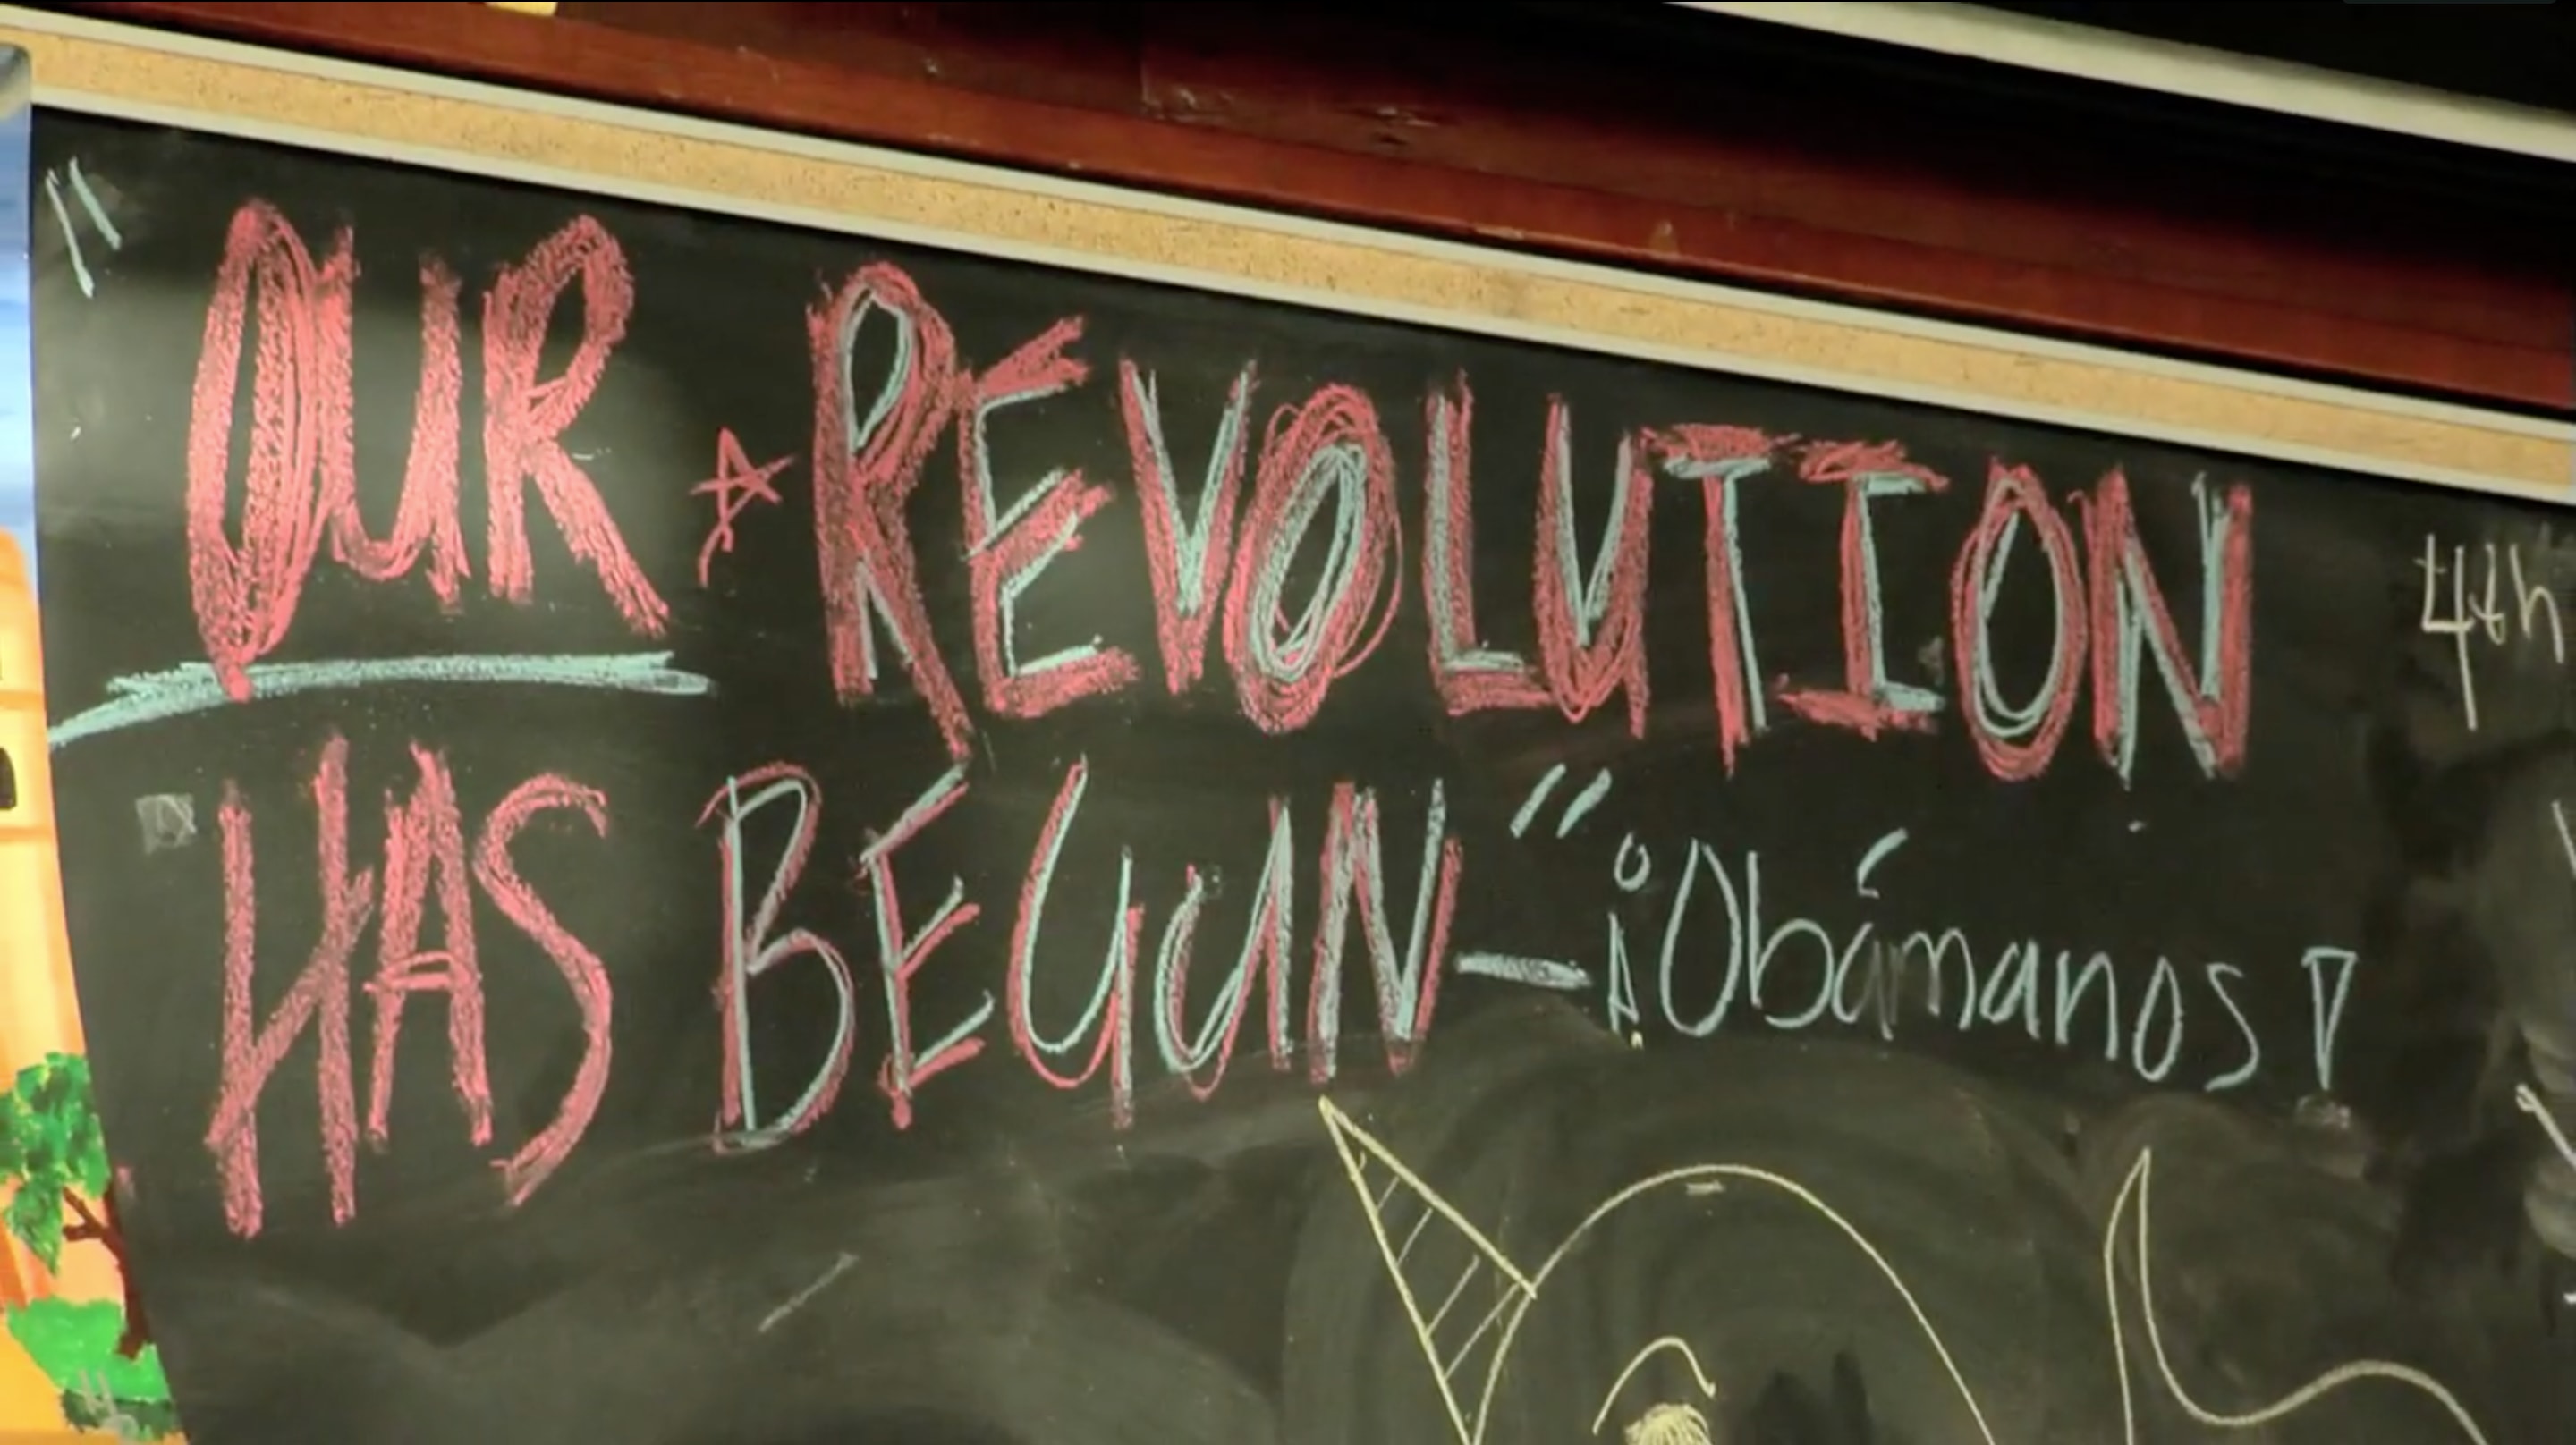 "OUR ☆ REVOLUTION
HAS BEGUN" - ¡Obámanos!
4th